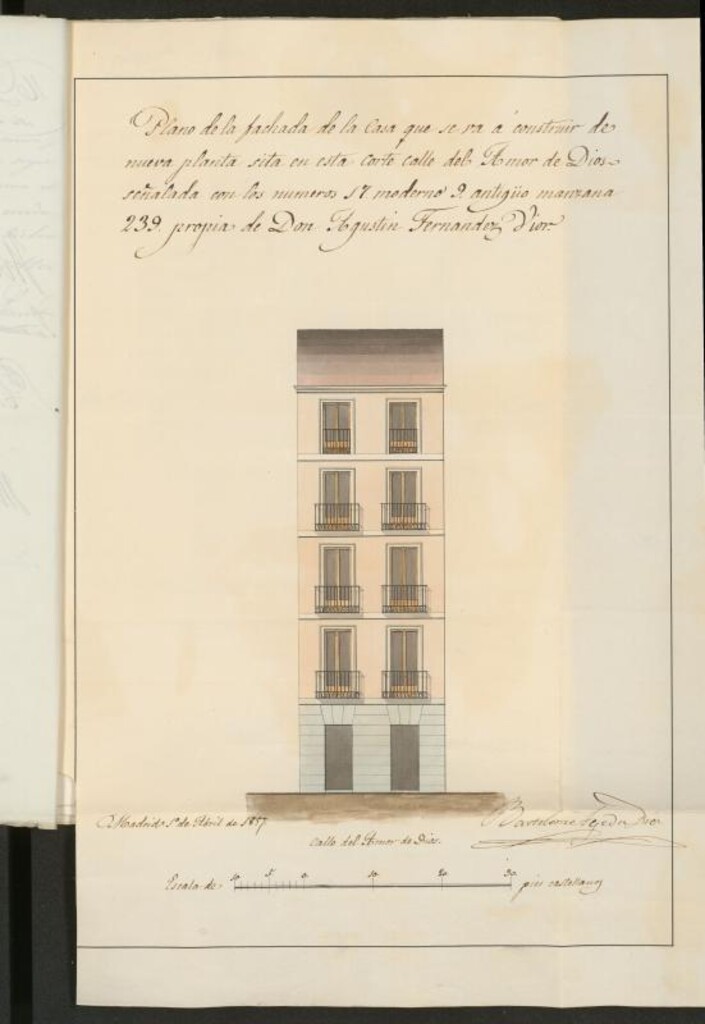 Plano de la fachada de la Casa que se va á construir de
nueva planta sita en esta Corte calle del Amor de Dios
señalada con los numeros 17 moderno 9. antigüo manzana
239. propia de Don Agustin Fernandez Dior.
Madrid 1º de Abril de 1857
Bartolomé Tejeda Diez
Calle del Amor de Dios.
Escala de 10 5 0 10 20 30 pies castellanos